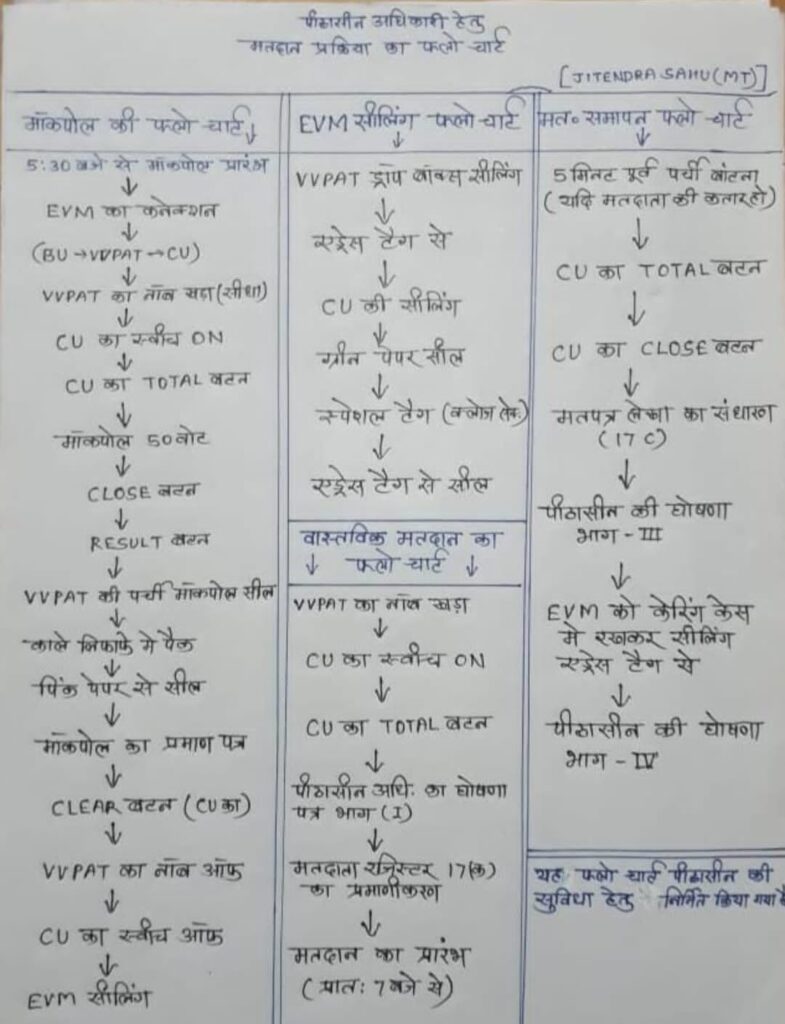 पीठासीन अधिकारी हेतु
मतदान प्रक्रिया का फ्लो चार्ट
[JITENDRA SAHU (MT)]
मॉकपोल की फ्लो चार्ट ↓
5:30 बजे से मॉकपोल प्रारंभ
↓
EVM का कनेक्शन
↓
(BU→VVPAT→CU)
↓
VVPAT का नॉब खड़ा (सीधा)
↓
CU का स्वीच ON
↓
CU का TOTAL बटन
↓
मॉकपोल 50 वोट
↓
CLOSE बटन
↓
RESULT बटन
↓
VVPAT की पर्ची मॉकपोल सील
↓
काले लिफाफे मे पैक
↓
पिंक पेपर से सील
↓
मॉकपोल का प्रमाण पत्र
↓
CLEAR बटन (CU का)
↓
VVPAT का नॉब ऑफ
↓
CU का स्वीच ऑफ
↓
EVM सीलिंग
EVM सीलिंग फ्लो चार्ट
↓
VVPAT ड्रॉप बॉक्स सीलिंग
↓
एड्रेस टैग से
↓
CU की सीलिंग
↓
ग्रीन पेपर सील
↓
स्पेशल टैग (क्लोज सेक.)
↓
एड्रेस टैग से सील
वास्तविक मतदान का
↓ फ्लो चार्ट ↓
VVPAT का नॉब खड़ा
↓
CU का स्वीच ON
↓
CU का TOTAL बटन
↓
पीठासीन अधि. का घोषणा
पत्र भाग (I)
↓
मतदाता रजिस्टर 17(क)
का प्रमाणीकरण
↓
मतदान का प्रारंभ
(प्रातः 7 बजे से)
मत॰ समापन फ्लो चार्ट
↓
5 मिनट पूर्व पर्ची बांटना
(यदि मतदाता की कतार हो)
↓
CU का TOTAL बटन
↓
CU का CLOSE बटन
↓
मतपत्र लेखा का संधारण
(17 C)
↓
पीठासीन की घोषणा
भाग - III
↓
EVM को केरिंग केस
मे रखकर सीलिंग
एड्रेस टैग से
↓
पीठासीन की घोषणा
भाग - IV
यह फ्लो चार्ट पीठासीन की
सुविधा हेतु निर्मित किया गया है